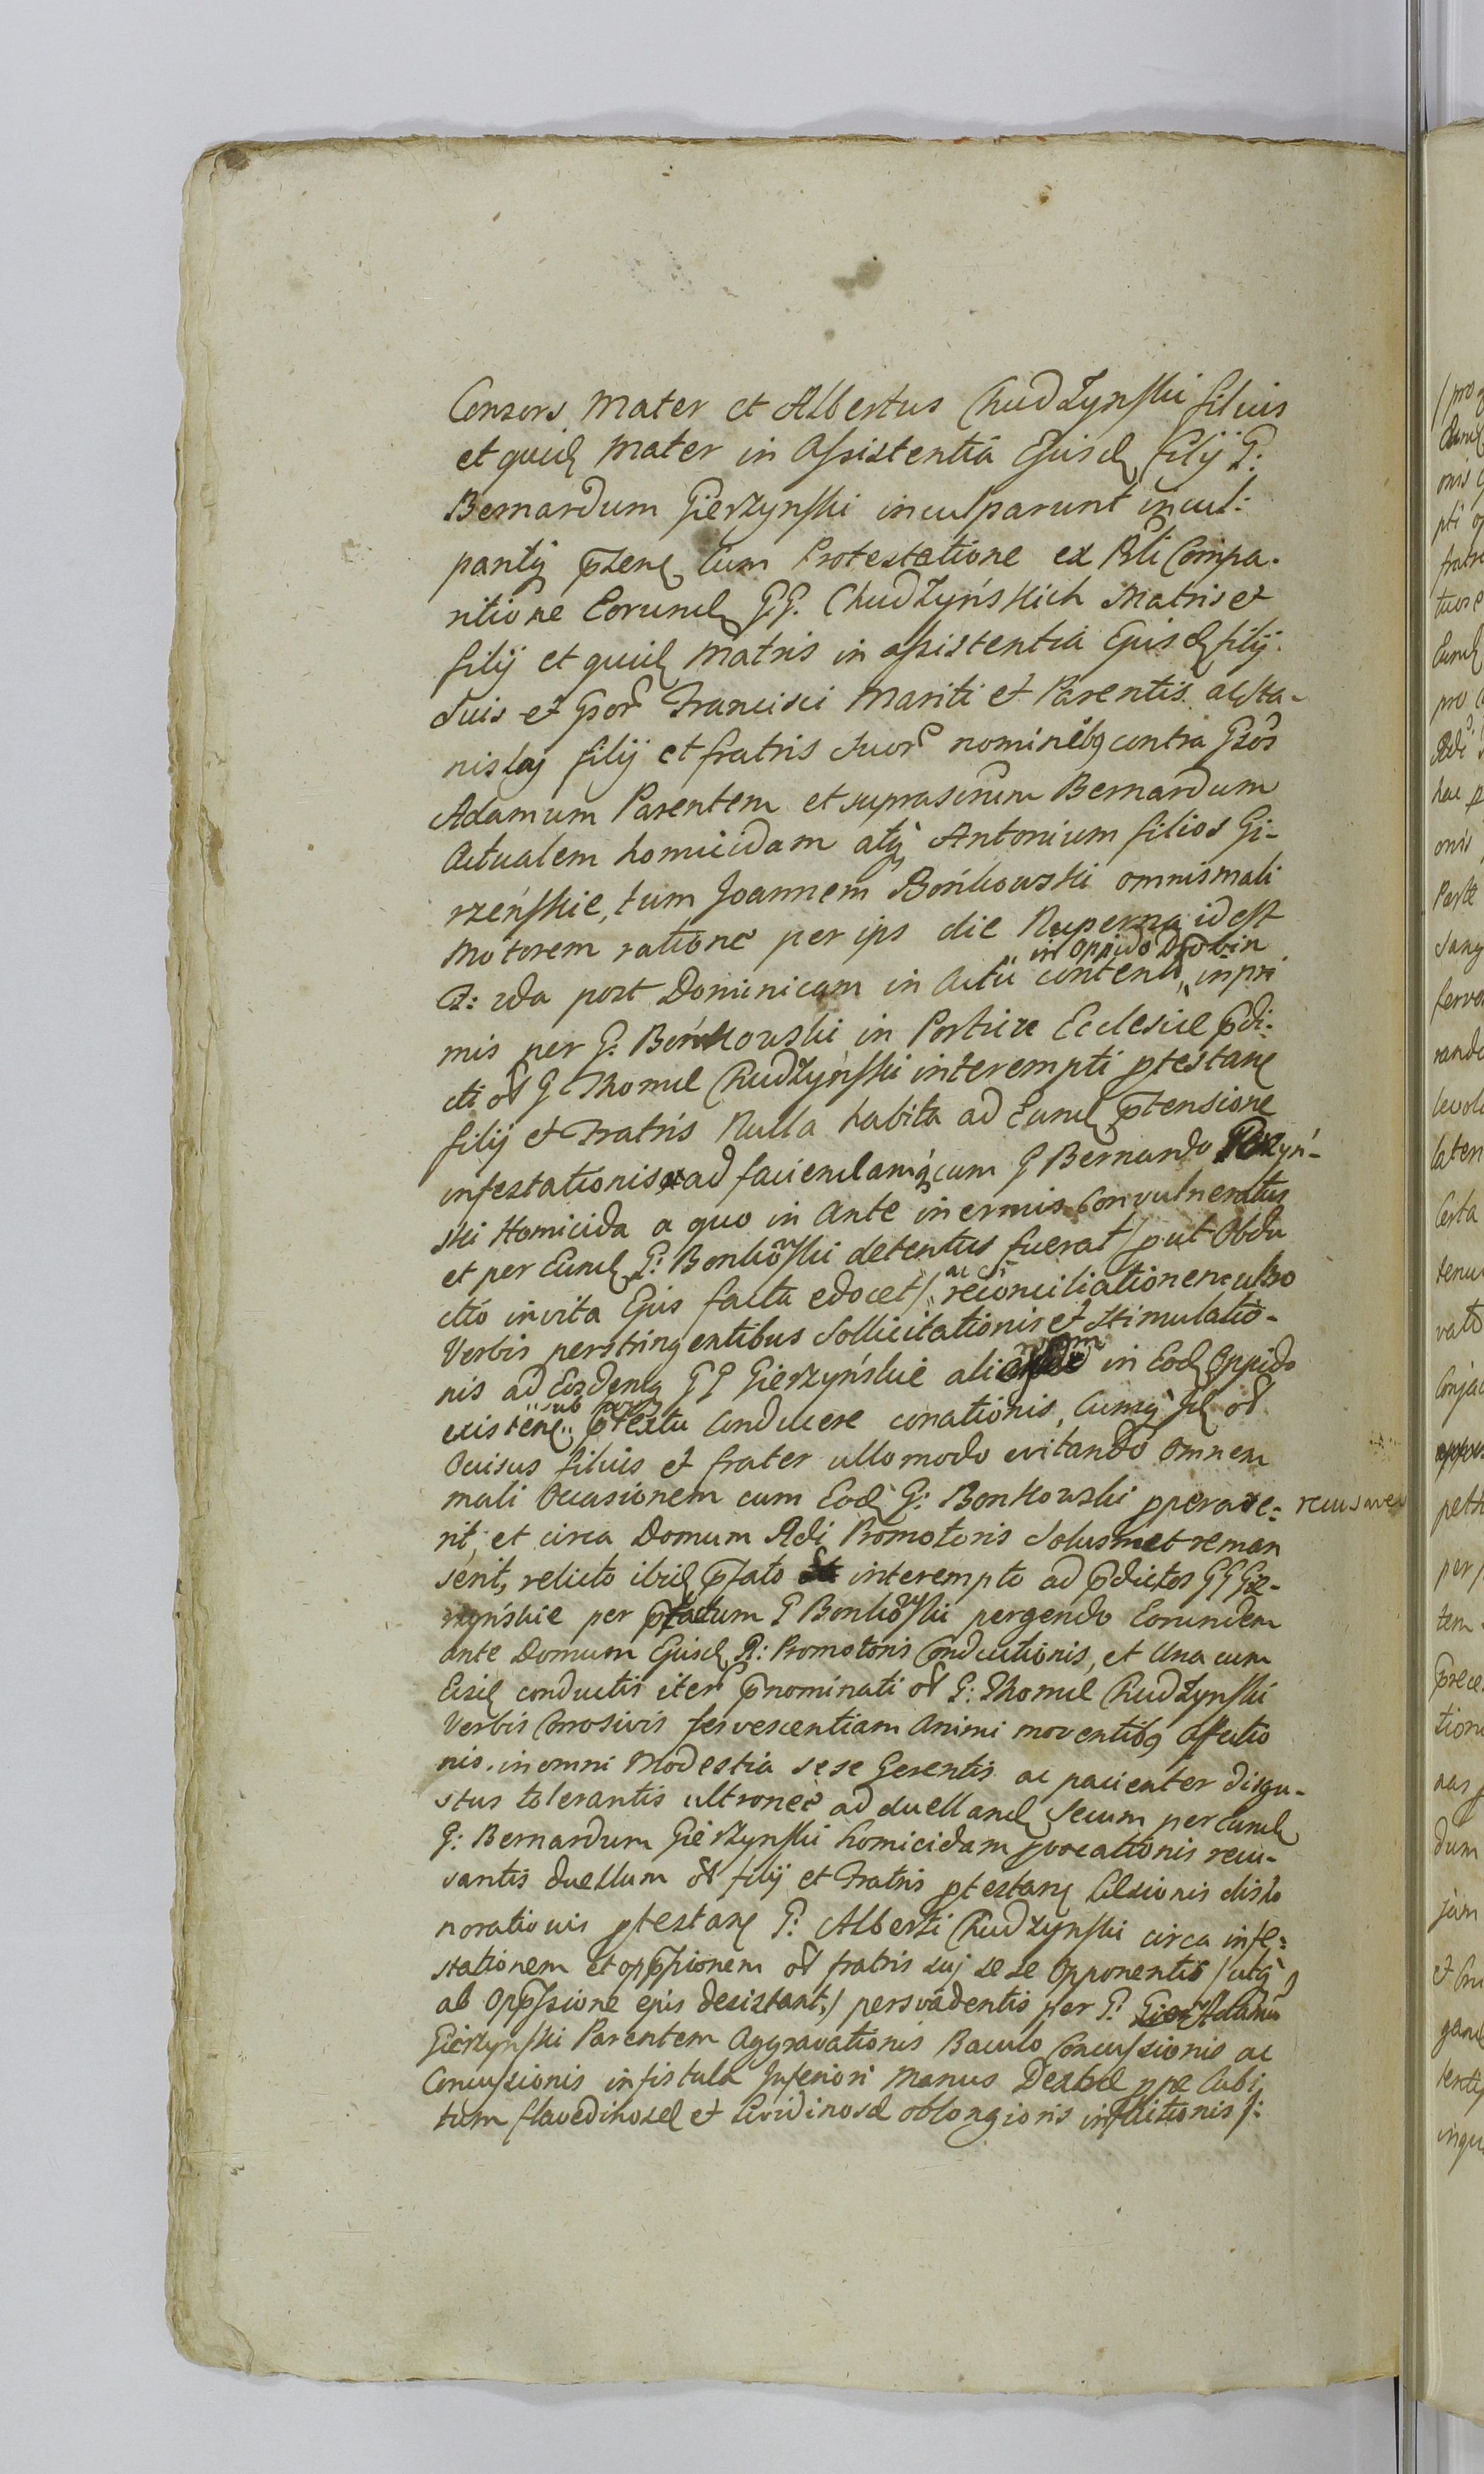 Consors Mater et Albertus Chudzynski filius
et quid Mater in Assistentia Ejusd filij G:
Bernardum Gierzynski inculparunt incul:
pantq pzend cum Protestatione ex Pbli Compa-
ritione Eorund GG. Chudzyńskich Matris et
filij et quid Matris in assistentia Ejusd filij
suis et Gsor Francisci Mariti et Parentis ac Sta-
nislaj filij et fratris suor nominibq contra Gsos
Adamum Parentem et suprascrum Bernardum
Actualem homicidam atq Antonium filios Gi-
rzeńskie, tum Joannem Bońkowski omnis mali
Motorem ratione per ips die Nuperna id est
F: 2da post Dominicam in Actu content, inpri
in Oppido Drobin
mis per G. Bońkowski in Porticu Ecclesiae pdi-
cti ol G Thomae Chudzyński interempti ptestan
filij et Fratris Nulla habita ad Eund ptensione
infestationis ad faciendamq cum G Bernardo
ski Homicida a quo in Ante inermis Convulneratus
et per Eund G: Bonkowski detentus fuerat / put Obdu
ctio in vita Ejus facta edocet / reconciliationem ultro
ac si
Verbis perstringentibus Sollicitationis et stimulatio-
nis ad Eosdemq GG Gierzyńskie in Eod Oppido
existen ptextu Conducere conationis, Cumq Id ol
sub
Occisus filius et frater ullo modo evitando Omnem
mali Occasionem cum Eod G: Bonkowski pperare: recusaver
rit, et circa Domum Rdi Promotoris Solusmet reman
serit, relicto ibid pfato interempto ad pdictos GG Gie-
rzyńskie per pfatum G Bonkowski pergendo Eorundem
ante Domum Ejusd R: Promotoris Conductionis, et Una cum
Eisd conductis iter pnominati ol G: Thomae Chudzynski
Verbis Corrosivis fervescentiam Animi moventibq Affectio
nis. in omni Modestia sese Gerentis ac pacienter disgu-
stus tolerantis ultronee ad duelland Secum per Eund
G: Bernardum Gierzynski homicidam pvocationis recu-
santis duellum ol filij et Fratris ptestan Caesionis disho
norationis ptestan G: Alberti Chudzynski circa infe:
stationem et oppssionem ol fratris sui se se Opponentis / utq
ab Oppssione ejus desistant, / persvadentis per G. Adamum
Gierzynski Parentem Aggravationis Baculo Concussionis ac
Concussionis in fistula Inferiori Manus Dextrae ppe Cubi
tum flavedinosae et Lividinosae oblongioris inflictionis /: